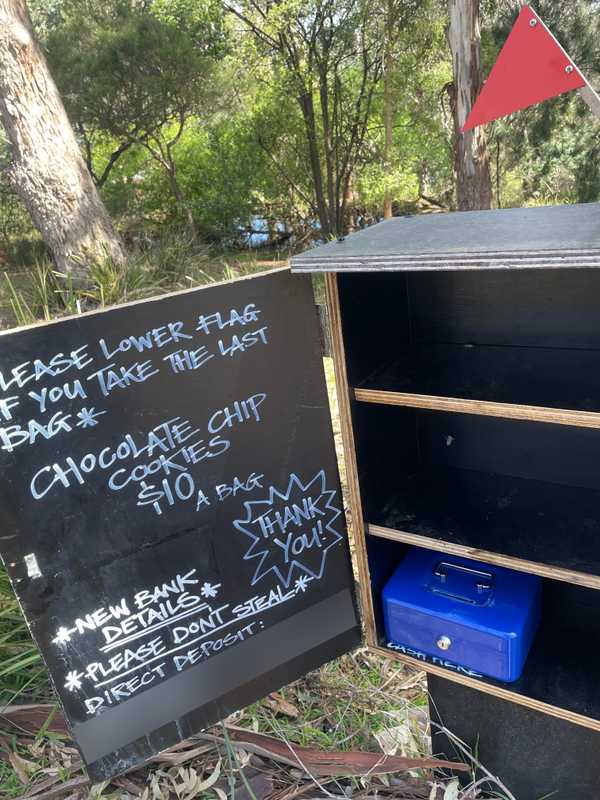 LEASE LOWER FLAG
F YOU TAKE THE LAST
BAG*
CHOCOLATE CHIP
COOKIES
$10 A BAG
THANK
YOU!
*NEW BANK
DETAILS*
*PLEASE DONT STEAL*
DIRECT DEPOSIT:
CASH HERE